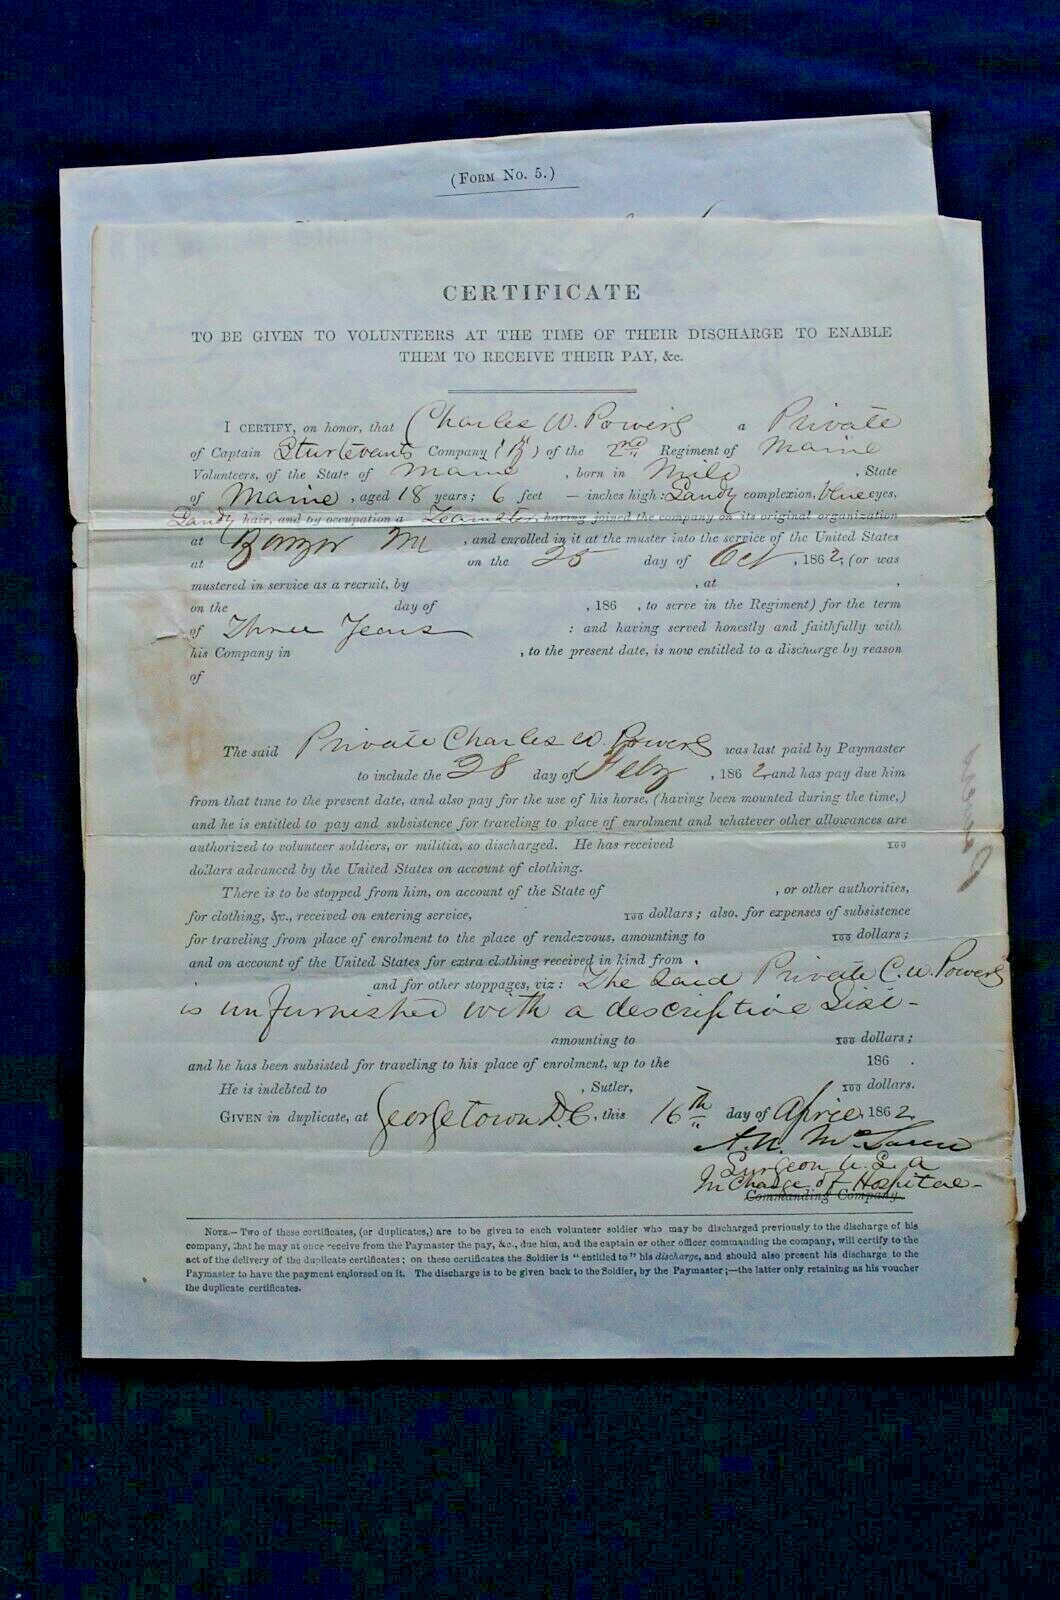 (Form No. 5.)
CERTIFICATE
TO BE GIVEN TO VOLUNTEERS AT THE TIME OF THEIR DISCHARGE TO ENABLE
THEM TO RECEIVE THEIR PAY, &c.
I CERTIFY, on honor, that Charles W. Powers a Private
of Captain Sturtevants Company (B) of the 2nd Regiment of Maine
Volunteers, of the State of Maine, born in Milo, State
of Maine, aged 18 years; 6 feet — inches high: Sandy complexion, blue eyes,
Sandy hair, and by occupation a Teamster, having joined the company on its original organization
at Bangor Me, and enrolled in it at the muster into the service of the United States
at on the 25 day of Oct, 1862, (or was
mustered in service as a recruit, by , at ,
on the day of , 186 , to serve in the Regiment) for the term
of Three Years : and having served honestly and faithfully with
his Company in , to the present date, is now entitled to a discharge by reason
of
The said Private Charles W. Powers was last paid by Paymaster
to include the 28 day of Feby, 1862, and has pay due him
from that time to the present date, and also pay for the use of his horse, (having been mounted during the time,)
and he is entitled to pay and subsistence for traveling to place of enrolment and whatever other allowances are
authorized to volunteer soldiers, or militia, so discharged. He has received 100
dollars advanced by the United States on account of clothing.
There is to be stopped from him, on account of the State of , or other authorities,
for clothing, &c., received on entering service, 100 dollars; also. for expenses of subsistence
for traveling from place of enrolment to the place of rendezvous, amounting to 100 dollars;
and on account of the United States for extra clothing received in kind from
and for other stoppages, viz: The Said Private C. W. Powers
is unfurnished with a descriptive List-
amounting to 100 dollars;
and he has been subsisted for traveling to his place of enrolment, up to the 186 .
He is indebted to , Sutler, 100 dollars.
GIVEN in duplicate, at Georgetown D.C., this 16th day of April, 1862
A. N. McLaren
Surgeon U.S.A
In Charge of Hospital-
Commanding Company.
NOTE.—Two of these certificates, (or duplicates,) are to be given to each volunteer soldier who may be discharged previously to the discharge of his
company, that he may at once receive from the Paymaster the pay, &c., due him, and the captain or other officer commanding the company, will certify to the
act of the delivery of the duplicate certificates; on these certificates the Soldier is "entitled to" his discharge, and should also present his discharge to the
Paymaster to have the payment endorsed on it. The discharge is to be given back to the Soldier, by the Paymaster;—the latter only retaining as his voucher
the duplicate certificates.